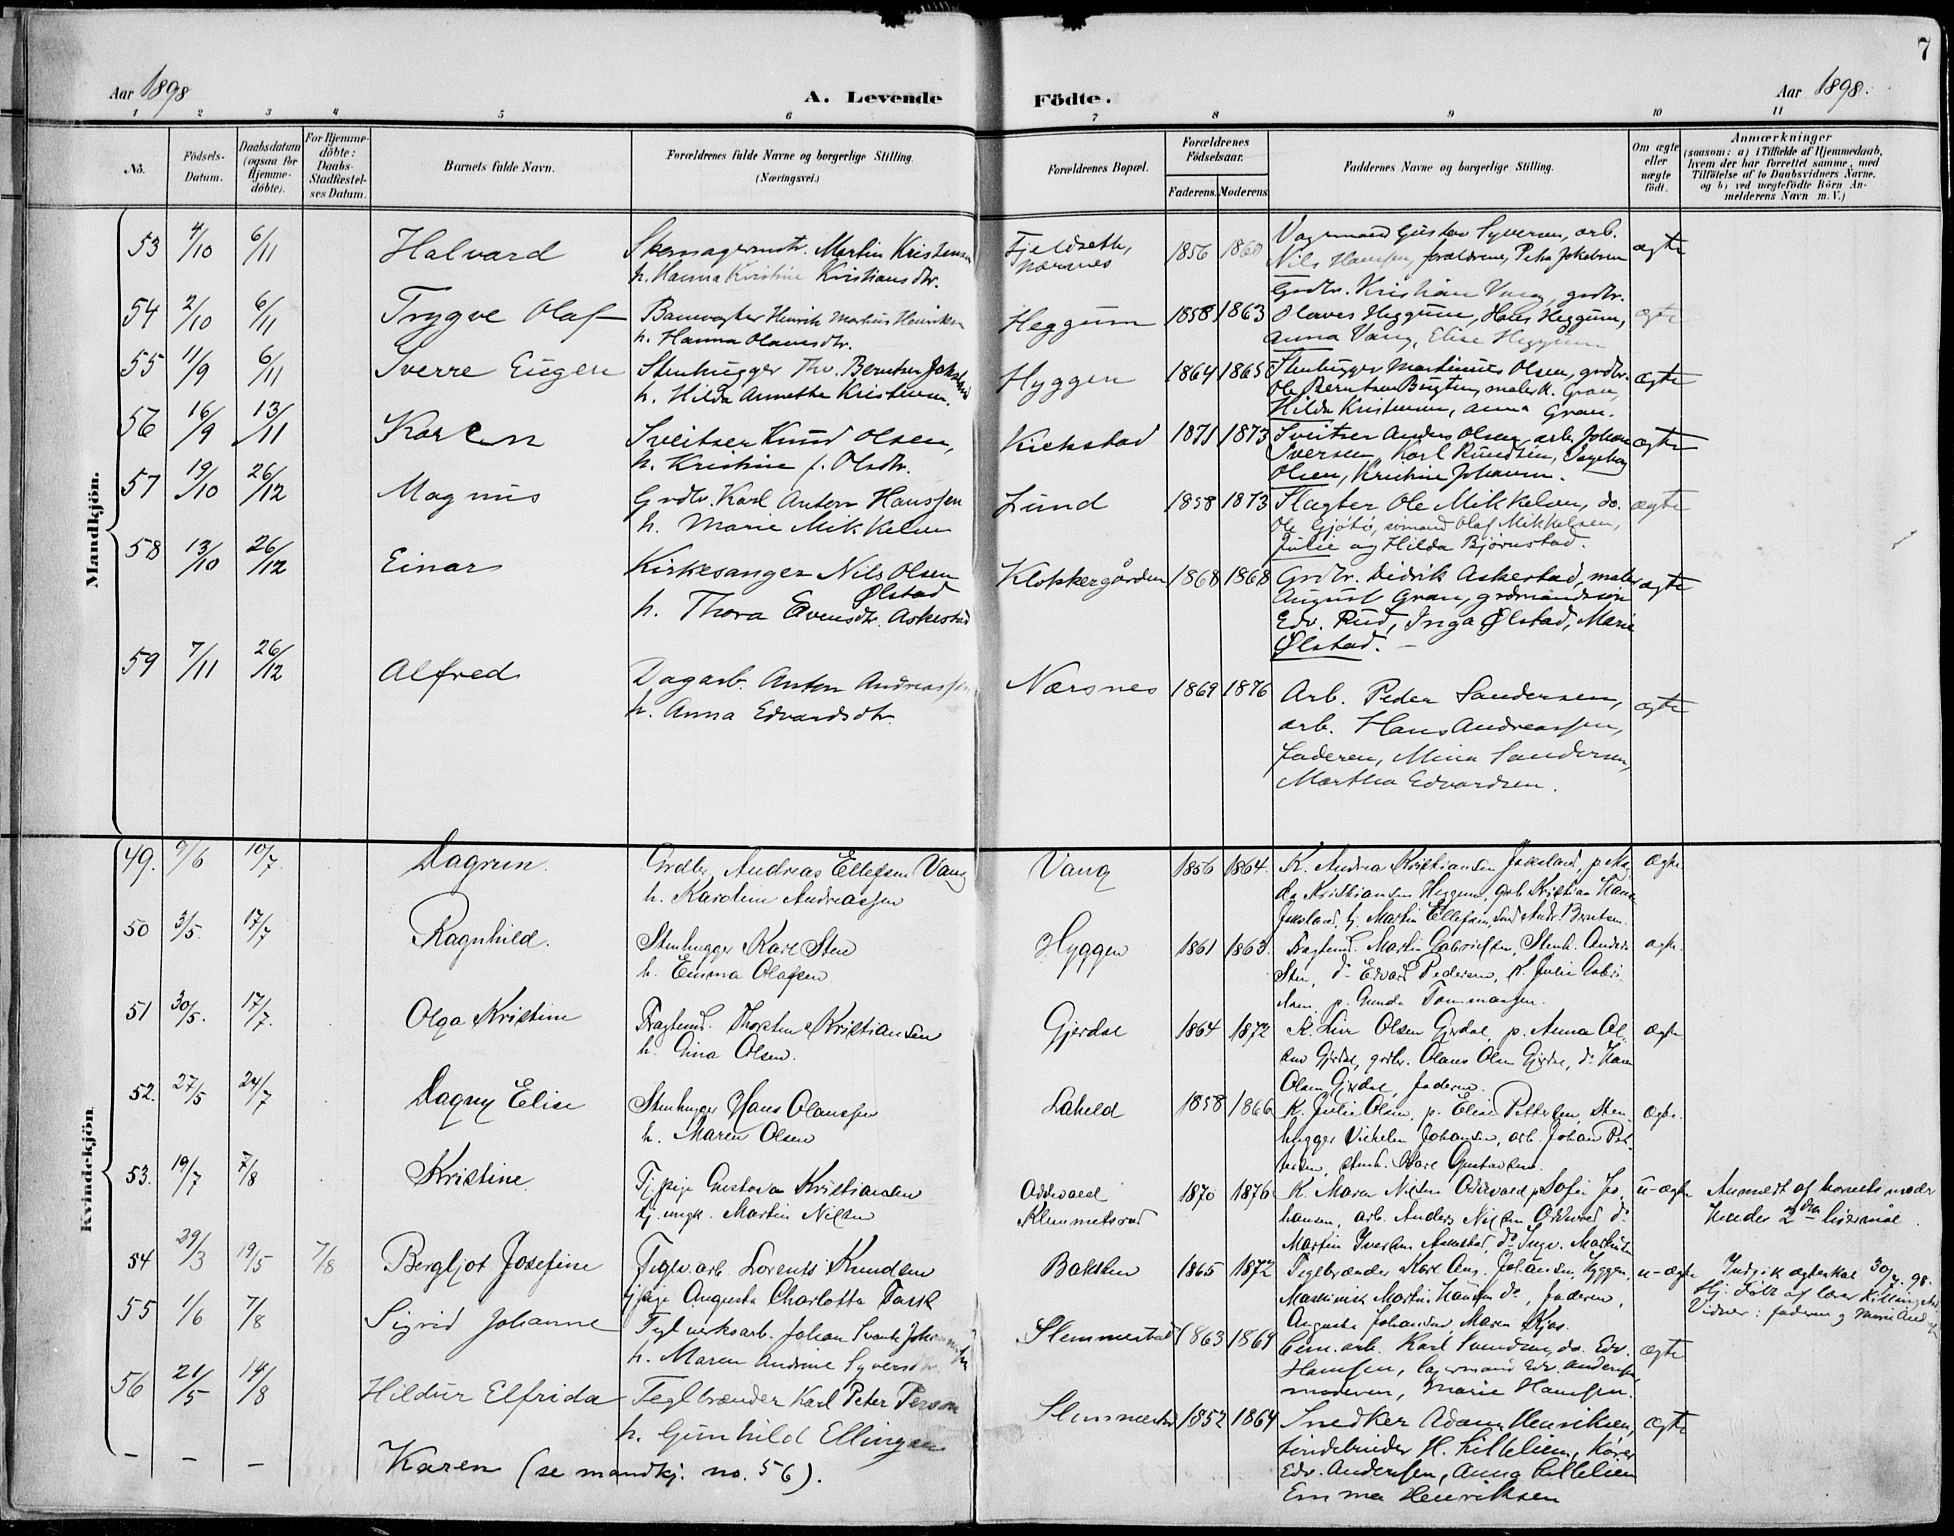 7
Aar 1898
A. Levende
Födte.
Aar 1898.
1 2 3 4 5 6 7 8 9 10 11
No.
Födsels-Datum.
Daabsdatum (ogsaa for Hjemme-döbte).
For Hjemme-döbte: Daabs-Stadfæstel-ses Datum.
Barnets fulde Navn.
Forældrenes fulde Navne og borgerlige Stilling. (Næringsvei.)
Forældrenes Bopæl.
Forældrenes Födselsaar.
Faderens. Moderens.
Faddernes Navne og borgerlige Stilling.
Om ægte eller uægte födt.
Anmærkninger
(saasom: a) i Tilfælde af Hjemmedaab, hvem der har forrettet samme, med Tilföielse af to Daabsvidners Navne, og b) ved uægtefödte Börn An-melderens Navn m. V.)
Mandkjön.
53 4/10 6/11 Halvard
Skomagermstr. Martin Kristensen
h. Hanna Kristine Kristiansdtr.
Fjeldsæth, Nærsnes 1856 1860
Gustav Syversen, arb.
Nils Hansen, forældrene, Petra Jakobsen
ægte
54 2/10 6/11 Trygve Olaf
Banevogter Henrik Martius Henriksen
h. Hanna Olavesdtr.
Heggum 1858 1863
Grdbr. Kristian Vang, grdbr.
Olaves Heggum, Hans Heggum,
Anna Vang, Elise Heggum
ægte
55 11/9 6/11 Sverre Eugen
Stenhugger Thv. Berntsen
h. Hilda Annette Kristensen.
Hyggen 1864 1865
Stenhugger Martinius Olsen, grdbr.
Ole Berntsen Bugten, maler K. Gran,
Hilda Kristensen, Anna Gran.
ægte
56 16/9 13/11 Karen
Sveitser Knud Olsen,
h. Kristine f. Olsdtr.
Kickstad 1871 1873
Sveitser Anders Olsen, arb. Johan
Iversen, Karl Knudsen, Ingeborg
Olsen, Kristine Johansen.
ægte
57 19/10 26/12 Magnus
Grdbr. Karl Anton Hanssen
h. Marie Mikkelsen
Lund 1858 1873
Slagter Ole Mikkelsen, do.
Ole Gjötö, sömand Olaf Mikkelsen,
Julie og Hilda Bjørnstad.
ægte
58 13/10 26/12 Einar
Kirkesanger Nils Olsen
Ølstad
h. Thora Evensdtr. Askestad
Klokkergården 1868 1868
Grdbr. Didrik Askestad, maler
August Gran, grdmandssøn
Edv. Rud, Inga Ølstad, Marie
Ølstad.
ægte
59 7/11 26/12 Alfred
Dagarb. Anton Andreassen
h. Anna Edvardsdtr.
Nærsnes 1869 1876
Arb. Peder Sandersen,
arb. Hans Andreassen,
faderen, Mina Sandersen,
Martha Edvardsen.
ægte
Kvindekjön
49. 9/6 10/7 Dagrun.
Grdbr. Andreas Ellefsen Vang
h. Karoline Andreassen
Vang 1856 1864.
K. Andrea Kristiansen Jaksland,
Kristiansen Heggum, Kristian
Jaksland, Martin Ellefsen, Berntsen.
ægte.
50 3/5. 17/7 Ragnhild.
Stenhugger Karl Sten
h. Emma Olafsen
Hyggen 1861 1863.
Martin Gabrielsen, Stenh. Anders
Sten, do Edvard Pedersen, K. Julie Gabri
elsen, p. Gunda Tommassen.
ægte.
51 30/5. 17/7. Olga Kristine
Thorsten Kristiansen
h. Gina Olsen.
Gjerdal 1864 1872
K. Olsen Gjerdal, p. Anna Ol-
sen Gjerdal, grdbr. Olaus Olsen Gjerdal, do
Olsen Gjerdal, faderen.
ægte
52. 27/5 24/7 Dagny Elise
Stenhugger Hans Olaussen
h. Maren Olsen
Laheld 1858 1866
K. Julie Olsen, p. Elise Pettersen, Sten
hugger Vilhelm Johansen, arb. Johan Pet
tersen, stenh. Karl Gustavsen.
ægte.
53. 19/7 7/8 Kristine
Tj. pige Gustava Kristiansen
tj. ungk. Martin Nilsen
Oddevald
Klemmetsrud
1870 1876
K. Maren Nilsen Oddevald, p. Sofie Jo
hansen, arb. Anders Nilsen Oddevald, do
Martin Iversen
u-ægte
Anmeldt af barnets moder
Under 2den leiermål.
54 29/3 19/5 7/8 Bergljot Josefine
Teglv.arb. Lorents Knudsen
tj. pige Augusta Charlotta Fask
Bakken 1865 1872
Teglbrænder Karl Aug. Johansen, Hyggen,
Maskinist Martin Hansen do, faderen,
Augusta Johansen, Maren Kjos.
u-ægte
Indgik ægteskab 30/7 98.
Hj. döbt af lærer
Vidner: faderen og
55 1/6 7/8 Sigrid Johanne
Teglverksarb. Johan
h. Maren Andrine Syversdtr.
Slemmestad 1863 1869
Cem. arb. Karl do. Edv.
Hansen, lagermand Edv. Andersen
moderen, Marie Hansen.
ægte
56 21/5 14/8 Hildur Elfrida
Teglbrænder Karl Peter Person
h. Gunhild Ellingsen
Slemmestad 1852 1864
Snedker Adam Henriksen,
töndebinder H. Lillelien, Kører
Edv. Andersen, Anna Lillelien
Emma Henriksen
ægte
– – – Karen (se mandkj. no. 56).